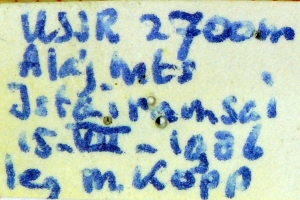 USSR 2700m
Alaj. mts
15-VII-1986
leg M. Kopp